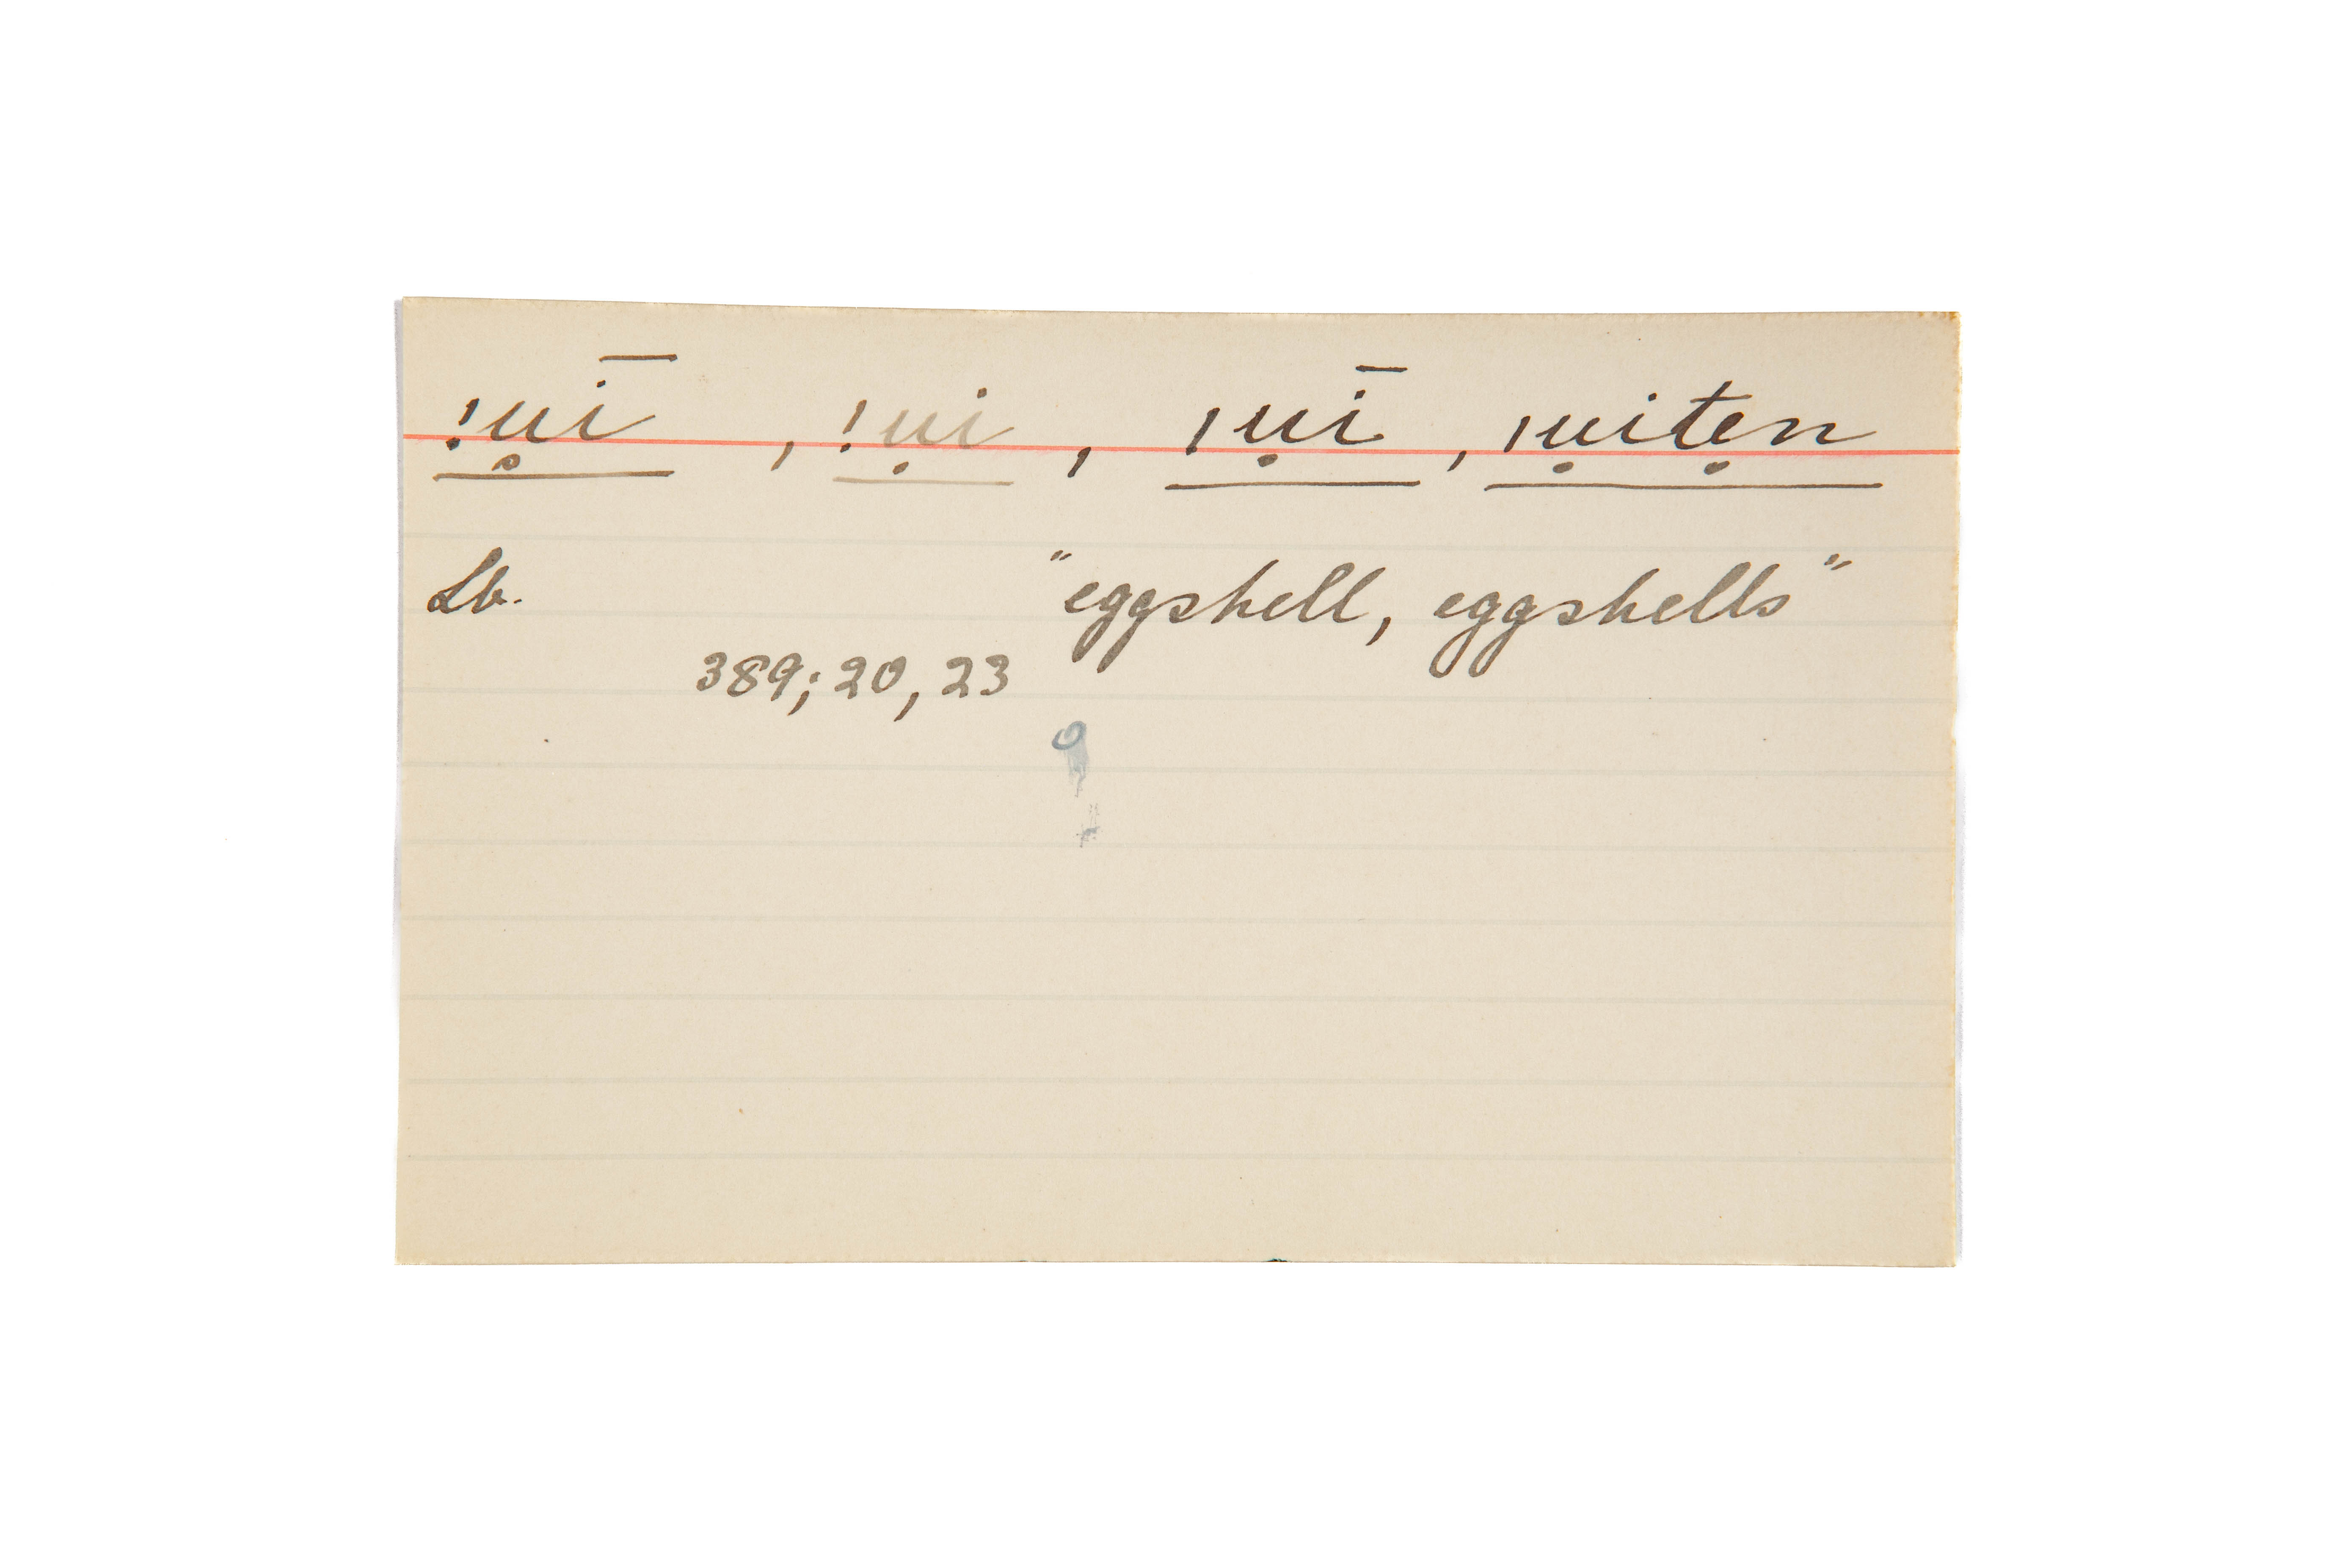 !ụī , !ụi , ǀụī , ǀụitẹn
Lb. "eggshell, eggshells"
389; 20, 23